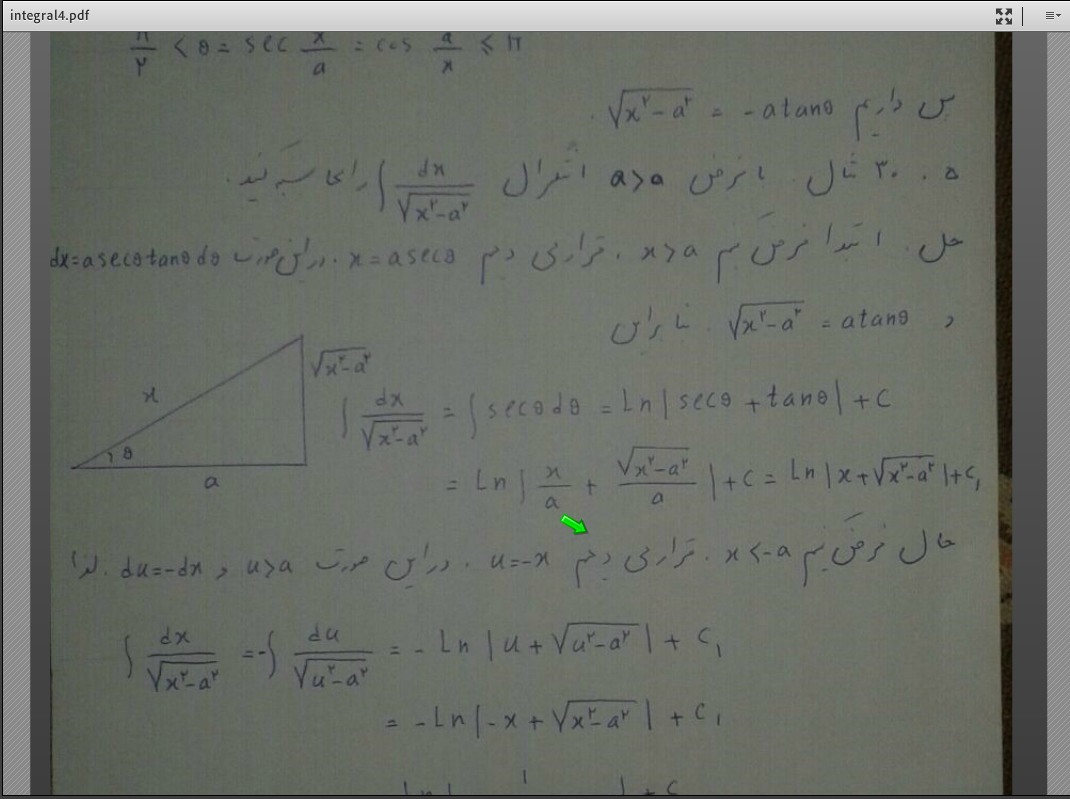 integral4.pdf
π/۲ < θ = sec x/a = cos a/x ≤ π
پس داریم √(x²-a²) = -a tanθ .
۵ . ۳۰ مثال. با فرض a>a انتگرال ∫ dx/√(x²-a²) را محاسبه کنید.
حل. ابتدا فرض کنیم x>a . قرار می دهیم x = a secθ . در این صورت dx=a secθ tanθ dθ
و √(x²-a²) = a tanθ . بنابراین
x
√(x²-a²)
θ
a
∫ dx/√(x²-a²) = ∫ secθ dθ = Ln|secθ + tanθ| + C
= Ln|x/a + √(x²-a²)/a| + C = Ln|x+√(x²-a²)|+C₁
حال فرض کنیم x<-a . قرار می دهیم u=-x . در این صورت u>a و du=-dx . لذا
∫ dx/√(x²-a²) = -∫ du/√(u²-a²) = - Ln|u + √(u²-a²)| + C₁
= -Ln|-x + √(x²-a²)| + C₁